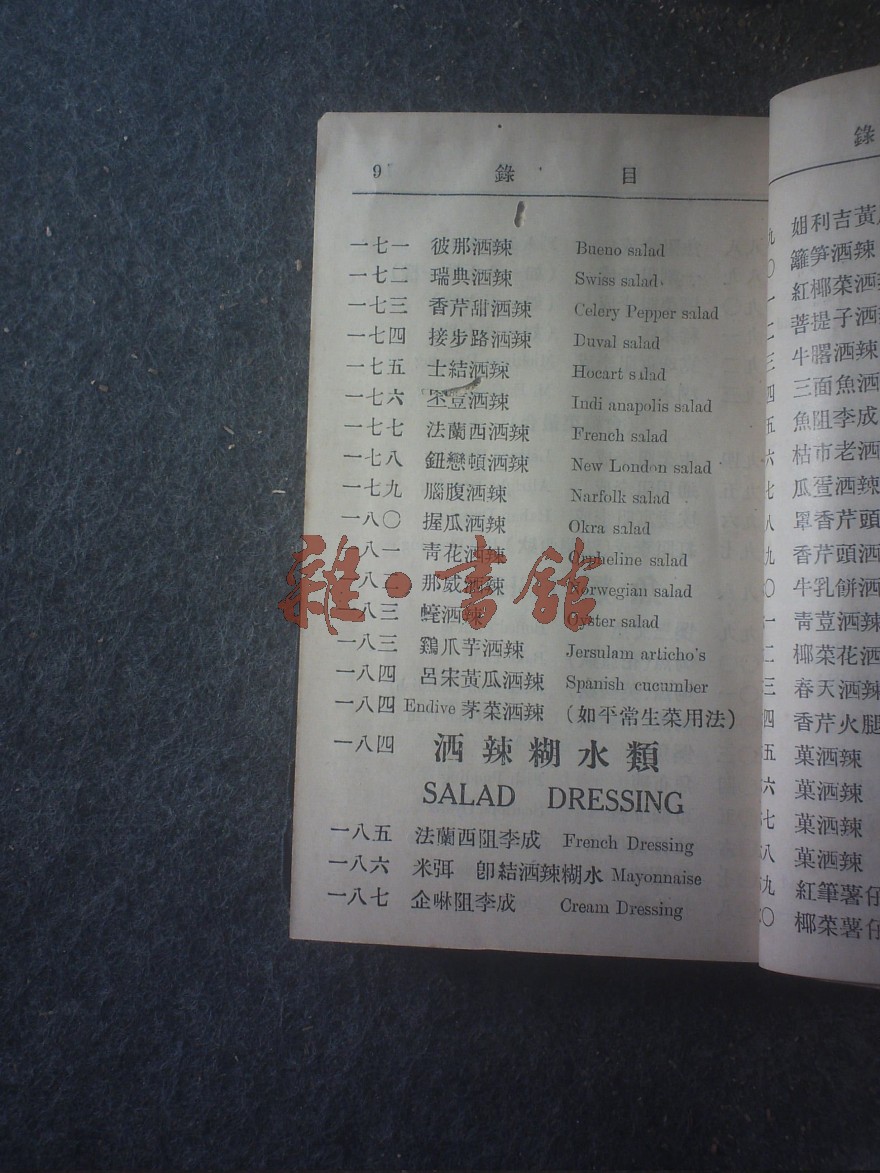 9 錄 目
一七一 彼那洒辣 Bueno salad
一七二 瑞典洒辣 Swiss salad
一七三 香芹甜洒辣 Celery Pepper salad
一七四 接步路洒辣 Duval salad
一七五 士結洒辣 Hocart salad
一七六 荳洒辣 Indi anapolis salad
一七七 法蘭西洒辣 French salad
一七八 鈕戀頓洒辣 New London salad
一七九 腦腹洒辣 Narfolk salad
一八〇 握瓜洒辣 Okra salad
八一 靑花洒辣 Orpheline salad
八二 那威洒辣 Norwegian salad
八三 蠔洒辣 Oyster salad
一八三 鷄爪芋洒辣 Jersulam articho's
一八四 呂宋黃瓜洒辣 Spanish cucumber
一八四 Endive 茅菜洒辣 (如平常生菜用法)
一八四 洒辣糊水類
SALAD DRESSING
一八五 法蘭西阻李成 French Dressing
一八六 米弭 卽結洒辣糊水 Mayonnaise
一八七 企啉阻李成 Cream Dressing
雜·書館
錄
九 姐利吉黃
〇 籬笋洒辣
一 紅椰菜洒
二 菩提子洒
三 牛䐿洒辣
四 三面魚洒
五 魚阻李成
六 枯市老洒
七 瓜疍洒辣
八 罩香芹頭
九 香芹頭洒
〇 牛乳餅洒
一 靑荳洒辣
二 椰菜花洒
三 春天洒辣
四 香芹火腿
五 菓洒辣
六 菓洒辣
七 菓洒辣
八 菓洒辣
九 紅筆薯仔
〇 椰菜薯仔